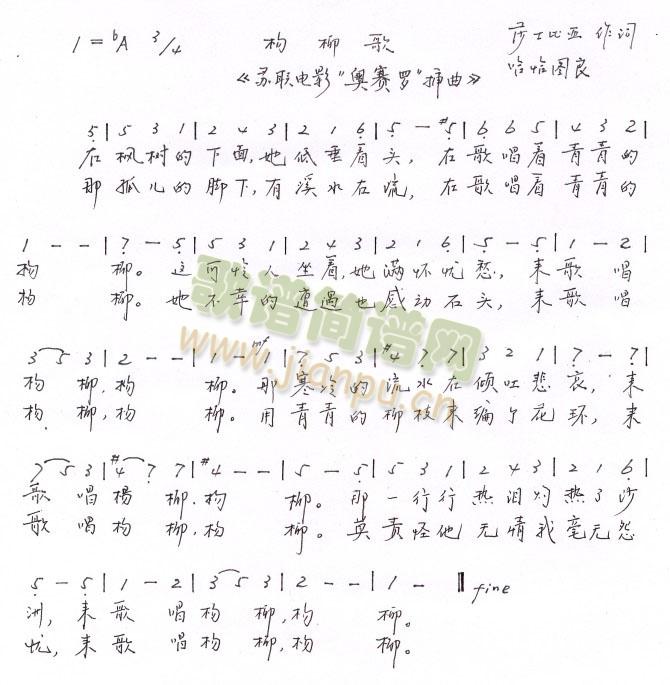 1=bA 3/4 杨柳歌 莎士比亚 作词
《苏联电影"奥赛罗"插曲》 哈恰图良
5|5 3 1|2 4 3|2 1 6|5 - #5|6 6 5|4 3 2|
在枫树的下面,她低垂着头, 在歌唱着青青的
那孤儿的脚下,有溪水在流, 在歌唱着青青的
1 - -|7 - 5|5 3 1|2 4 3|2 1 6|5 - 5|1 - 2|
杨 柳。 这可怜人坐着,她满怀忧愁, 来歌 唱
杨 柳。 她不幸的遭遇也感动石头, 来歌 唱
3 5 3|2 - -|1 - 1|7 5 3|#4 7 7|3 2 1|7 - 7|
杨 柳,杨 柳。 那寒冷的流水在倾吐悲哀, 来
杨 柳,杨 柳。 用青青的柳枝来编个花环, 来
7 5 3|#4 7 7|#4 - -|5 - 5|5 3 1|2 4 3|2 1 6|
歌 唱杨 柳,杨 柳。 那一行行热泪灼热了沙
歌 唱杨 柳,杨 柳。 莫责怪他无情我毫无怨
5 - 5|1 - 2|3 5 3|2 - -|1 - ‖ fine
洲, 来歌 唱杨 柳,杨 柳。
忧, 来歌 唱杨 柳,杨 柳。
歌谱简谱网
www.jianpu.cn